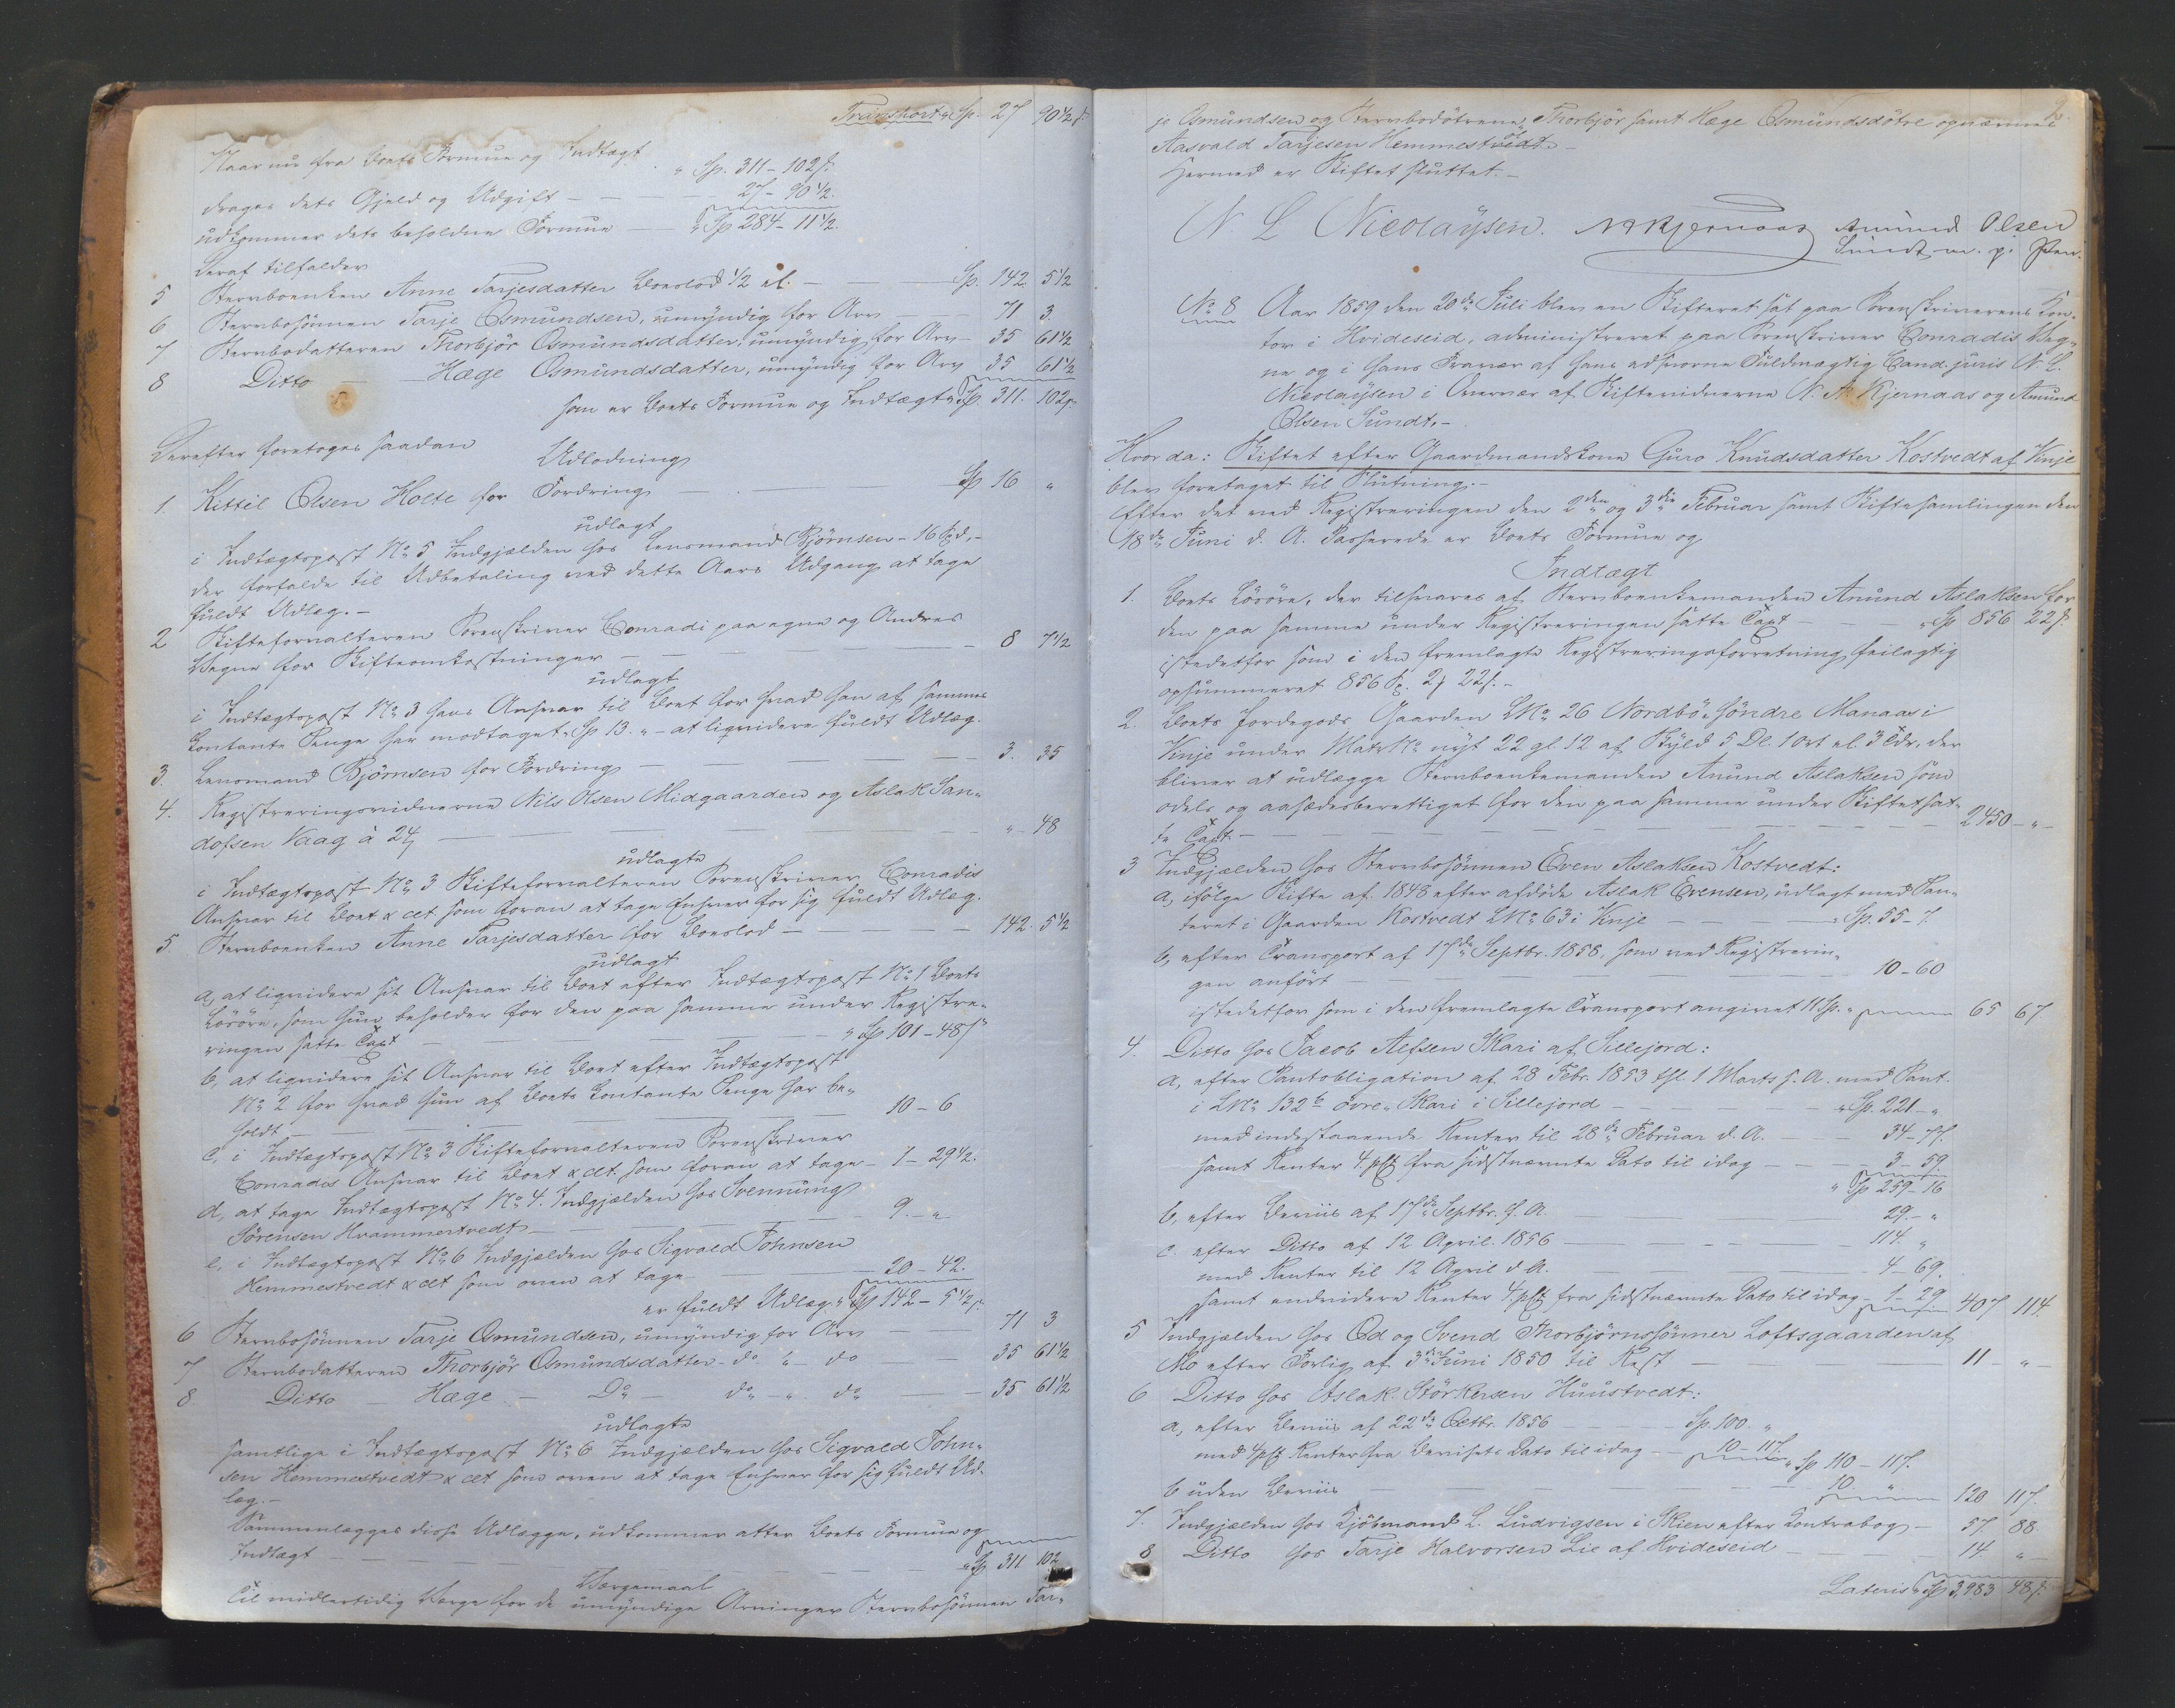 Transport „ Sp. 27 90½ s.
Naar nu fra Boets Formue og Indtægt „ Sp. 311 – 102 s.
drages dets Gjeld og Udgift – – – 27 – 90½.
udkommer dets beholdne Formue – „ Sp 284 – 11½.
Deraf tilfalder
5 Stervboenken Anne Tarjesdatter Boeslod ½ el. – – Sp. 142. 5½
6 Stervbosönnen Tarje Osmundsen, umyndig for Arv – 71 3.
7. Stervbodatteren Thorbjör Osmundsdatter, umyndig for Arv – 35 61½
8 Ditto – Hæge Osmundsdatter, umyndig for Arv 35 61½
som er Boets Formue og Indtægt „ Sp. 311. 102 s.
Derefter foretoges saadan
Udlodning
1. Kittil Olsen Holte for Fordring – – Sp 16 „
udlagt
i Indtægtspost No 5 Indgjælden hos Lensmand Björnsen – 16 Spd, –
der forfalde til Udbetaling ved dette Aars Udgang at tage
fuldt Udlæg. –
2 Skifteforvalteren Sorenskriver Conradi paa egne og Andres
Vegne for Skifteomkostninger – – – 8 7½
udlagt
i Indtægtspost No 3 hans Ansvar til Boet for hvad han af sammes
Contante Penge har modtaget, Sp 13. „ – at liqvidere fuldt Udlæg.
3. Lensmand Björnsen for Fordring – – – 3. 35
4. Registreringsvidnerne Nils Olsen Midgaarden og Aslak San-
dofsen Vaag à 24 s – – – „ – 48
udlagte
i Indtægtspost No 3 Skifteforvalteren Sorenskriver Conradis
Ansvar til Boet & ct som foran at tage Enhver for sig fuldt Udlæg.
5. Stervboenken Anne Tarjesdatter for Boeslod – – – 142. 5½
udlagt
a, at liqvidere sit Ansvar til Boet efter Indtægtspost No 1 Boets
Lösöre, som hun beholder for den paa samme under Registre-
ringen satte Taxt – – – „ Sp 101 – 48 s
b, at liqvidere sit Ansvar til Boet efter Indtægtspost
No 2 for hvad hun af Boets Contante Penge har be-
holdt – – – 10 – 6
c, i Indtægtspost No 3 Skifteforvalteren Sorenskriver
Conradis Ansvar til Boet & ct som foran at tage – 1 – 29½.
d, at tage Indtægtspost No 4. Indgjælden hos Svennung
Sörensen Hvammertvedt – – – 9. – „
e, i Indtægtspost No 6 Indgjælden hos Sigvald Johnsen
Hemmestvedt & ct som oven at tage – – 20 – 42.
er fuldt Udlæg „ Sp 142 – 5½ s.
6 Stervbosönnen Tarje Osmundsen, umyndig for Arv – – 71 3
7 Stervbodatteren Thorbjör Osmundsdatter – do „ – do – – 35 61½
8 Ditto – Hæge – Do – do – „ – do – – 35 61½
udlagte
samtlige i Indtægtspost No 6 Indgjælden hos Sigvald John-
sen Hemmestvedt & ct som oven at tage Enhver for sig fuldt Ud-
læg. –
Sammenlægges disse Udlægge, udkommer atter Boets Formue og
Indtægt – – – „ Sp 311 102
Værgemaal
Til midlertidig Værge for de umyndige Arvinger Stervbosönnen Tar-
2.
je Osmundsen og Stervbodötrene, Thorbjör samt Hæge Osmundsdötre opnævnes
Aasvald Tarjesen Hemmestvedt. –
Hermed er Skiftet sluttet. –
N L Nicolaÿsen. N A Kjernaas Amund Olsen
Sundt m. p. Pen.
No 8 Aar 1859 den 20de Juli blev en Skifteret sat paa Sorenskriverens Kon-
tor i Hvideseid, administreret paa Sorenskriver Conradis Veg-
ne og i hans Fravær af hans edsvorne Fuldmægtig Cand. juris N. L.
Nicolaÿsen i Overvær af Skiftevidnerne N. A. Kjernaas og Amund
Olsen Sundt. –
Hvor da: Skiftet efter Gaardmandskone Guro Knudsdatter Kostvedt af Vinje
blev foretaget til Slutning. –
Efter det ved Registreringen den 2den og 3die Februar samt Skiftesamlingen den
18de Juni d. A. Passerede er Boets Formue og
Indtægt
1. Boets Lösöre, der tilsvares af Stervboenkemanden Anund Aslaksen for
den paa samme under Registreringen satte Taxt – – – „ Sp 856 22 s.
istedetfor som i den fremlagte Registreringsforretning feilagtig
opsummeret 856 Sp. 2 22 s. –
2. Boets Jordegods Gaarden LNo 26 Nordbö, söndre Manaas i
Vinje under Matr No nyt 22 gl. 12 af Skyld 5 Dl. 1 Ort el. 3 Tdr, der
bliver at udlægge Stervboenkemanden Anund Aslaksen som
odels og aasædesberettiget for den paa samme under Skiftet sat-
te Taxt – – – 2450 – „ –
3 Indgjælden hos Stervbosönnen Even Aslaksen Kostvedt:
a, ifölge Skifte af 1848 efter afdöde Aslak Evensen, udlagt med Pan-
teret i Gaarden Kostvedt LNo 63 i Vinje – – „ Sp. 55 – 7.
b, efter Transport af 17de Septbr. 1858, som ved Registrerin-
gen anfört – – – 10 – 60
istedetfor som i den fremlagte Transport angivet 11 Sp. „ 65 67.
4. Ditto hos Jacob Alfsen Skari af Sillejord:
a, efter Pantobligation af 28 Febr. 1853 thl. 1 Marts s. A. med Pant
i LNo 132b övre Skari i Sillejord – – – „ Sp. 221 – „
med indestaaende Renter til 28de Februar d. A. – – 34 – 77.
samt Renter 4 pCt fra sidstnævnte Dato til idag – – 3 – 59
„ Sp 259 – 16
b, efter Beviis af 17de Septbr. f. A. – – 29 – „
c. efter Ditto af 12 April 1856 – – 114. „
med Renter til 12 April d. A. – – 4 – 69.
samt endvidere Renter 4 pCt fra sidstnævnte Dato til idag – 1 – 29 407 114.
5 Indgjælden hos Od og Svend Thorbjörnssönner Loftsgaarden af
Mo efter Forlig af 3die Juni 1850 til Rest – – 11 – „ –
6 Ditto hos Aslak Störkersen Huustvedt:
a, efter Beviis af 22de Octbr. 1856 – – Sp. 100. „
med 4 pCt Renter fra Bevisets Dato til idag – 10 – 117. „ Sp 110 – 117.
b uden Beviis – – – 10. „ 120 117.
7. Indgjælden hos Kjöbmand L. Ludvigsen i Skien efter Contrabog – 57. 88.
8 Ditto hos Tarje Halvorsen Lie af Hvideseid – – 14. „ –
Lateris „ Sp 3,983 48 s.